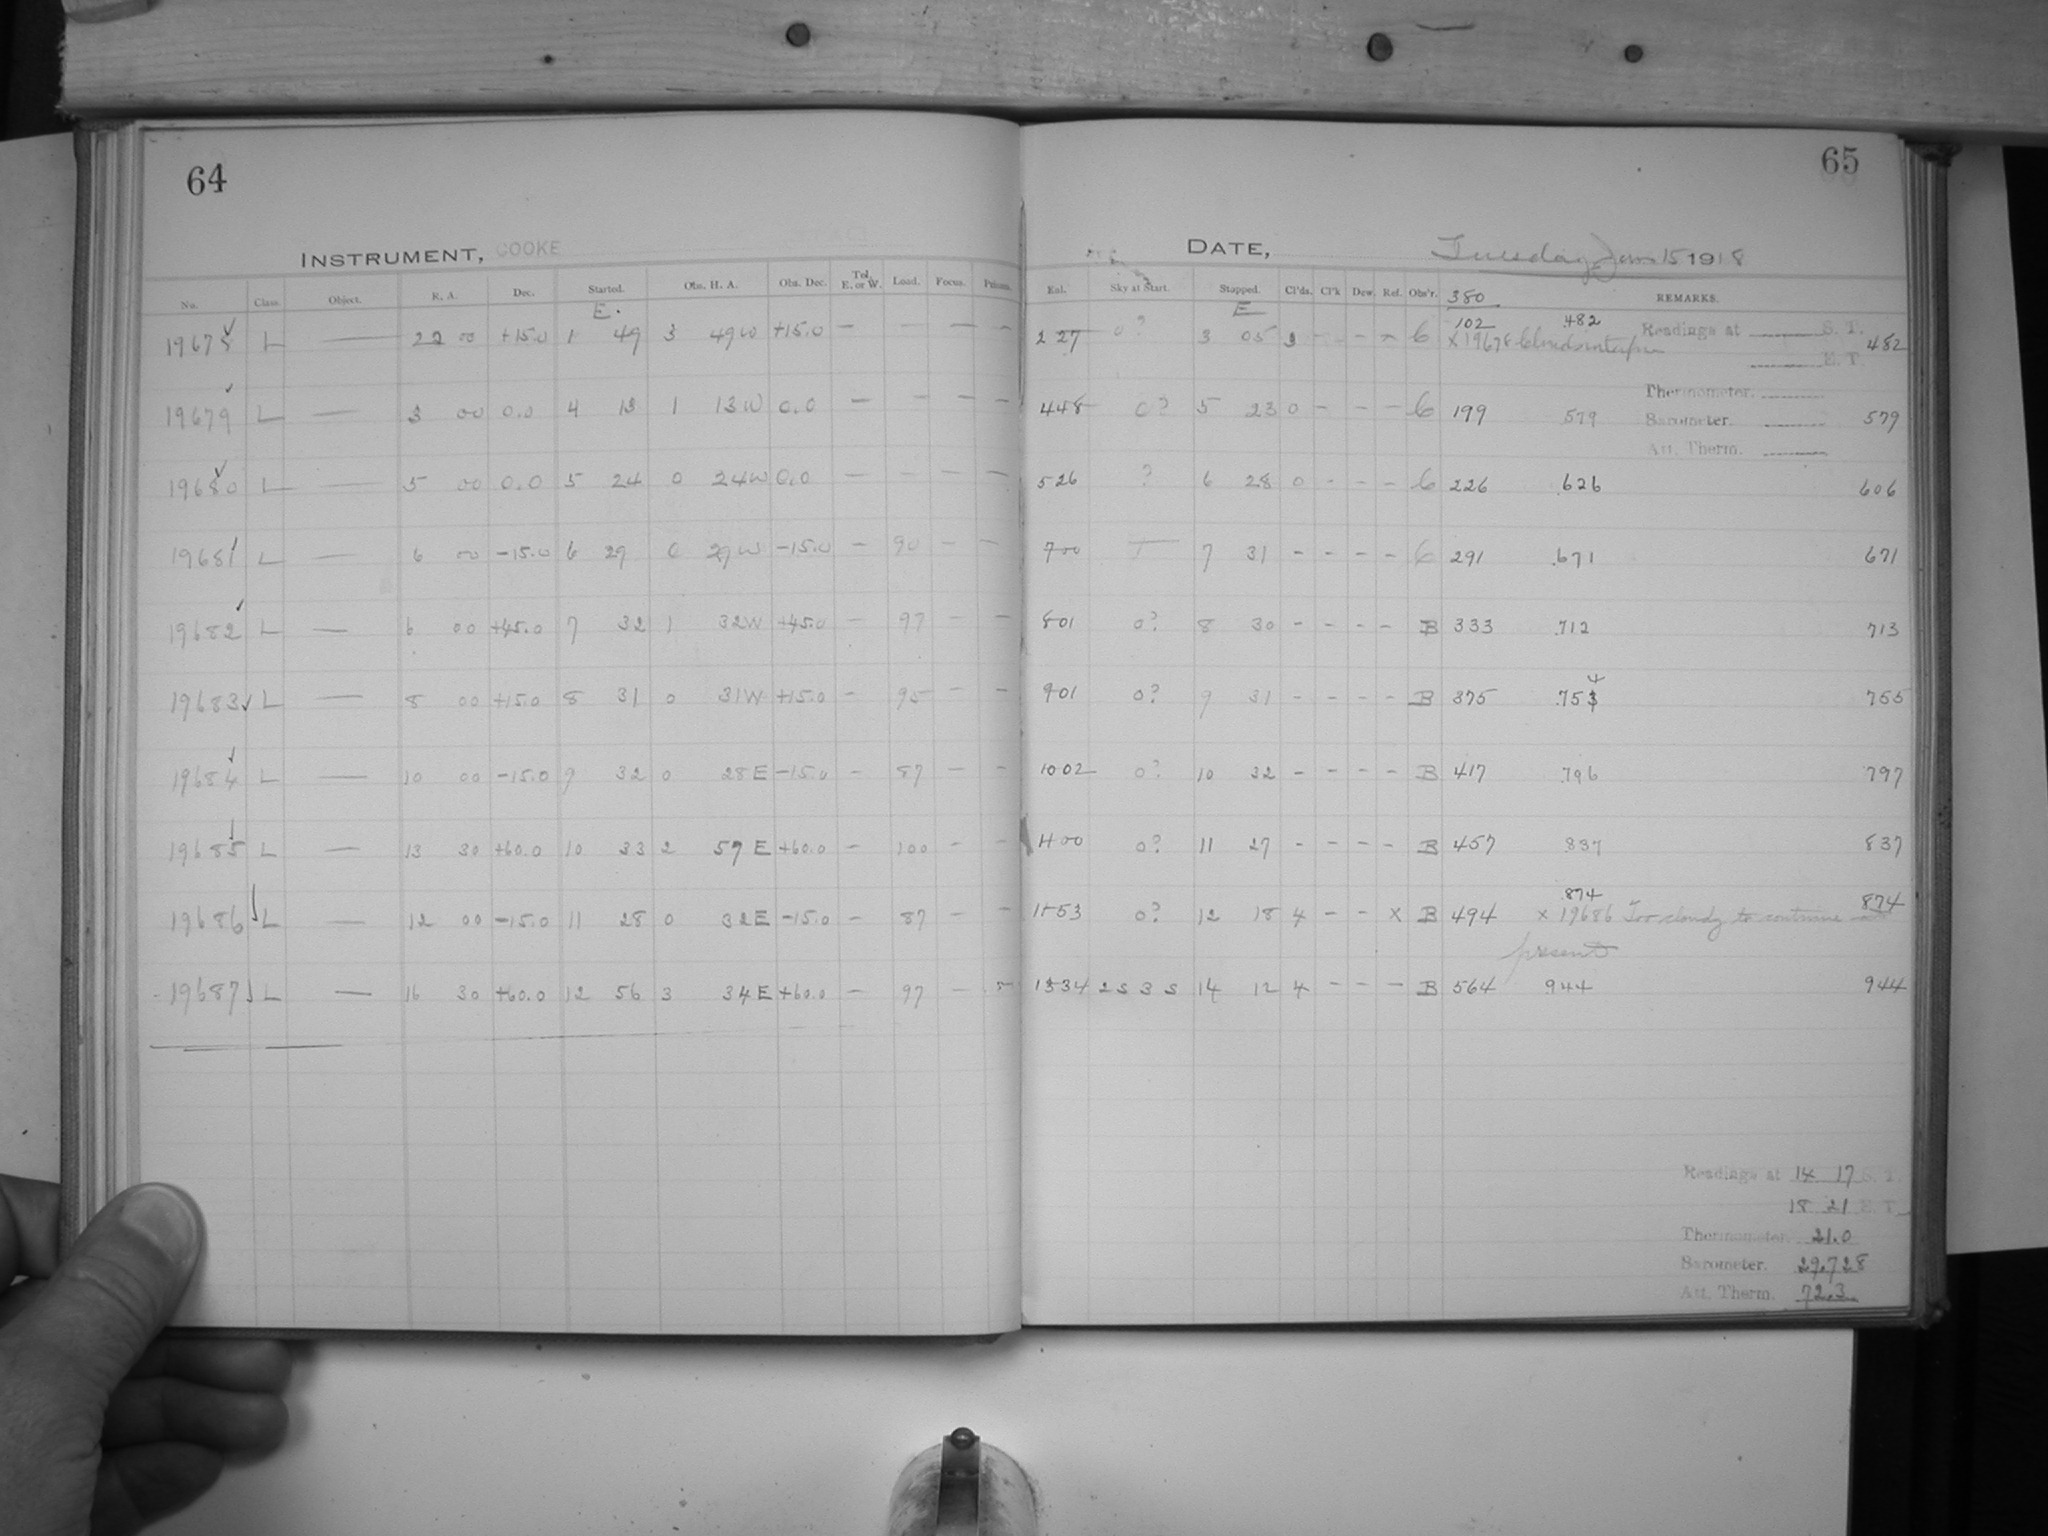 64
INSTRUMENT, COOKE
No. Class. Object. R. A. Dec. Started. Obs. H. A. Obs. Dec. Tel. E. or W. Load. Focus. Prisms.
E.
19678 L — 22 00 +15.0 1 49 3 49W +15.0 — — — —
19679 L — 3 00 0.0 4 13 1 13W 0.0 — — — —
19680 L — 5 00 0.0 5 24 0 24W 0.0 — — — —
19681 L — 6 00 -15.0 6 29 0 29W -15.0 — 90 — —
19682 L — 6 00 +45.0 7 32 1 32W +45.0 — 97 — —
19683 L — 8 00 +15.0 8 31 0 31W +15.0 — 95 — —
19684 L — 10 00 -15.0 9 32 0 28E -15.0 — 87 — —
19685 L — 13 30 +60.0 10 33 2 57E +60.0 — 100 — —
19686 L — 12 00 -15.0 11 28 0 32E -15.0 — 87 — —
19687 L — 16 30 +60.0 12 56 3 34E +60.0 — 97 — —
65
DATE, Tuesday Jan 15 1918
Exl. Sky at Start. Stopped. Cl'ds. Cl'k Dew. Ref. Obs'r. 380 REMARKS.
E
102 .482 Readings at S. T.
2 27 0? 3 05 3 - - x 6 x 19678 Clouds 482
E. T.
Thermometer.
448 0? 5 23 0 - - - 6 199 579 Barometer. 579
Att. Therm.
526 ? 6 28 0 - - - 6 226 .626 606
700 7 31 - - - - 6 291 .671 671
801 0? 8 30 - - - - B 333 .712 713
4
901 0? 9 31 - - - - B 375 .753 755
1002 0? 10 32 - - - - B 417 .796 797
1100 0? 11 27 - - - - B 457 .837 837
.874
1153 0? 12 18 4 - - x B 494 x 19686 Too cloudy to continue at 874
present
1334 2 S 3 S 14 12 4 - - - B 564 944 944
Readings at 14 17 S. T.
18 21 E. T.
Thermometer. 21.0
Barometer. 29.728
Att. Therm. 72.3